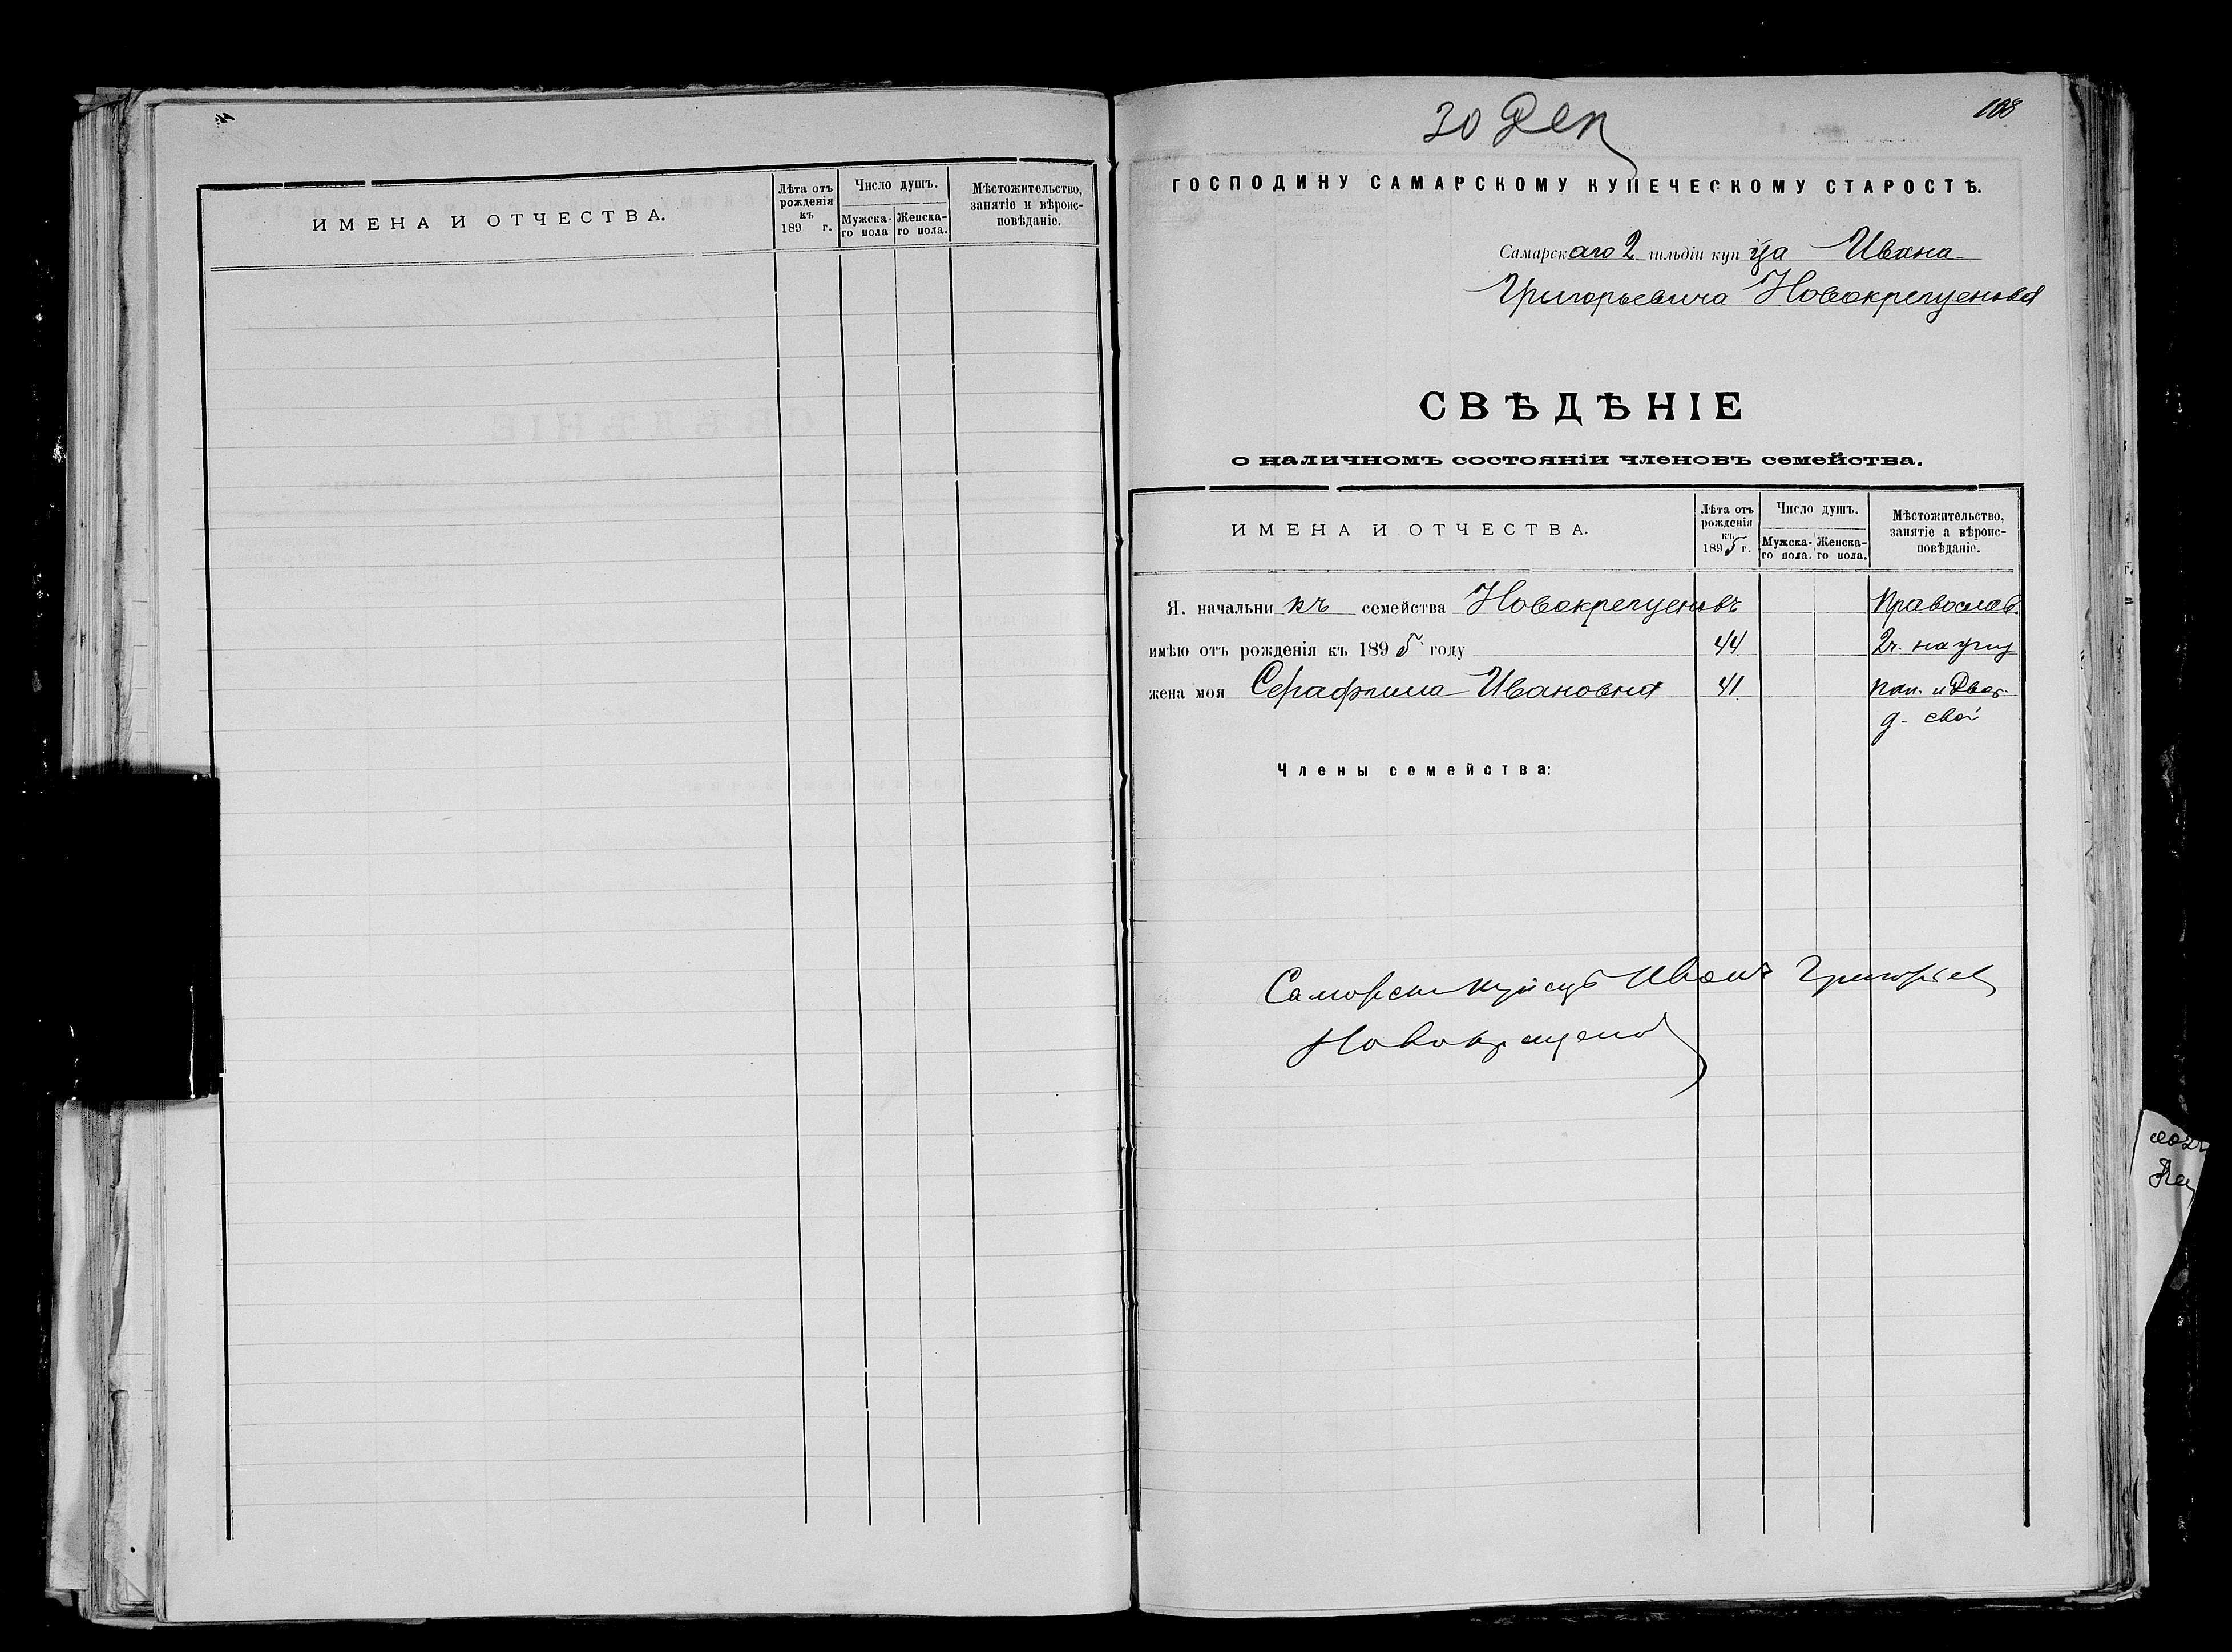 ИМЕНА И ОТЧЕСТВА.
Лѣта отъ рожденія къ 189 г.
Число душъ.
Мужска-го пола
Женска-го пола.
Мѣстожительство, занятіе и вѣроис-повѣданіе.
108
30 Дек
ГОСПОДИНУ САМАРСКОМУ КУПЕЧЕСКОМУ СТАРОСТѢ.
Самарскаго 2 гильдіи купца Ивана
Григорьевича Новокрещенова
СВѢДѢНІЕ
о наличномъ состояніи членовъ семейства.
ИМЕНА И ОТЧЕСТВА.
Лѣта отъ рожденія къ 1895 г.
Число душъ.
Мужска-го пола.
Женска-го пола.
Мѣстожительство, занятіе а вѣроис-повѣданіе.
Я. начальникъ семейства Новокрещеновъ Православ.
имѣю отъ рожденія къ 1895 году 44 2ч. на углу
жена моя Серафима Ивановна 41 и Двор.
д. свой
Члены семейства:
Самарски купецъ Иванъ Григорьев
Новокрещенов